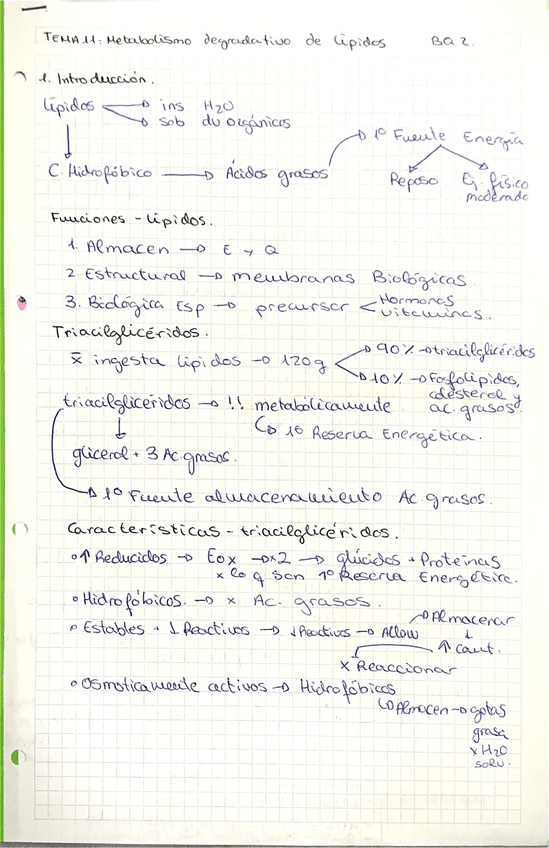 TEMA 11: Metabolismo degradativo de lípidos BQ 2.
1. Introducción.
lípidos → ins H2O
→ sob dv orgánicos
1º Fuente Energía
C. Hidrofóbico → Ácidos grasos
Reposo Ej. físico
moderado
Funciones - lípidos.
1. Almacen → E y Q
2. Estructural → membranas Biológicas
3. Biológica Esp → precursor < Hormonas
vitaminas.
Triacilglicéridos.
x̄ ingesta lípidos → 120g → 90% → triacilglicéridos
→ 10% → Fosfolípidos,
colesterol y
ac. grasos.
triacilglicéridos → !! metabólicamente
↳ 1º Reserva Energética.
glicerol + 3 Ac. grasos.
→ 1º Fuente almacenamiento Ac. grasos.
Características - triacilglicéridos.
• ↑ Reducidos → Eox → x2 → glúcidos + Proteínas
x lo q son 1º Reserva Energética.
• Hidrofóbicos. → x Ac. grasos.
→ Almacenar
• Estables + ↓ Reactivos → ↓ Reactivos → Allow
↑ Cant.
x Reaccionar
• Osmoticamente activos → Hidrofóbicos
↳ Almacen → gotas
grasa
x H2O
solv.